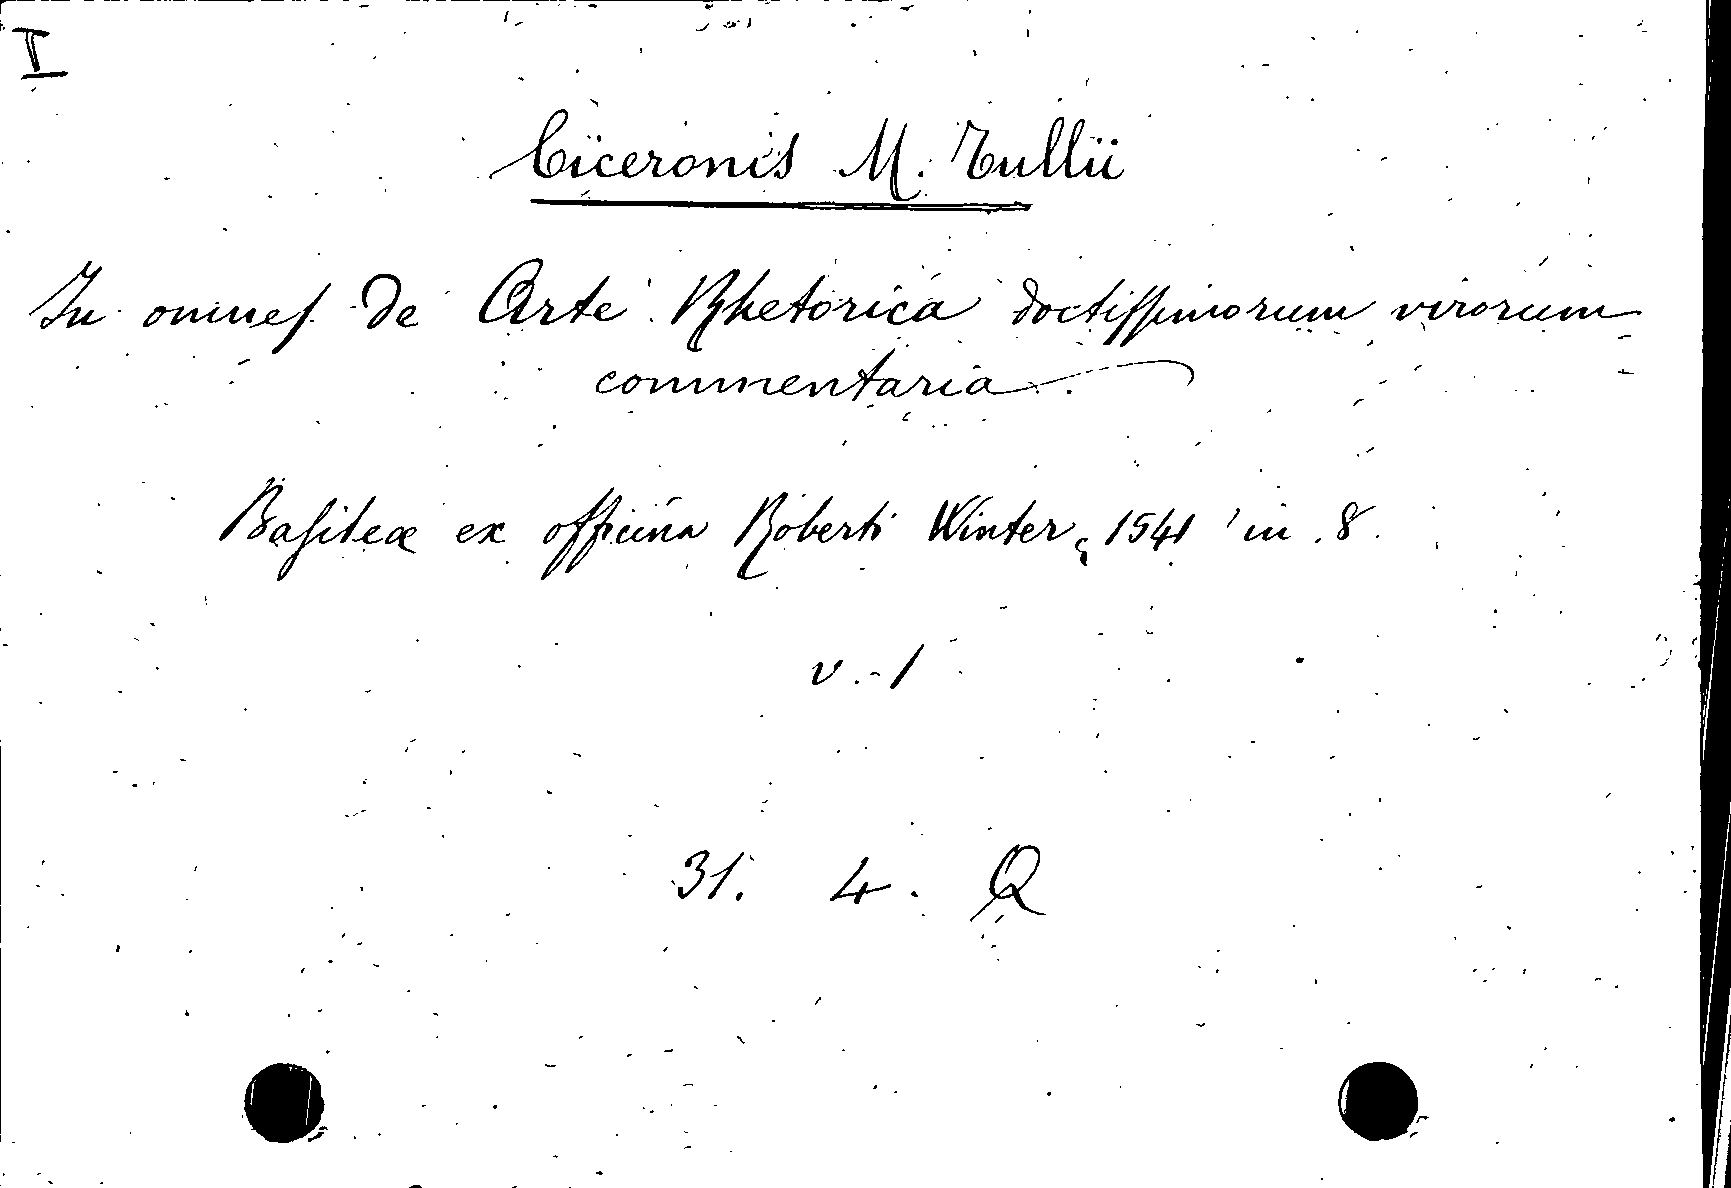 I
Ciceronis M. Tullii
In omnes de Arte Rhetorica doctissimorum virorum
commentaria.
Basileæ ex officina Roberti Winter, 1541 in 8.
v. 1
31. 4. Q